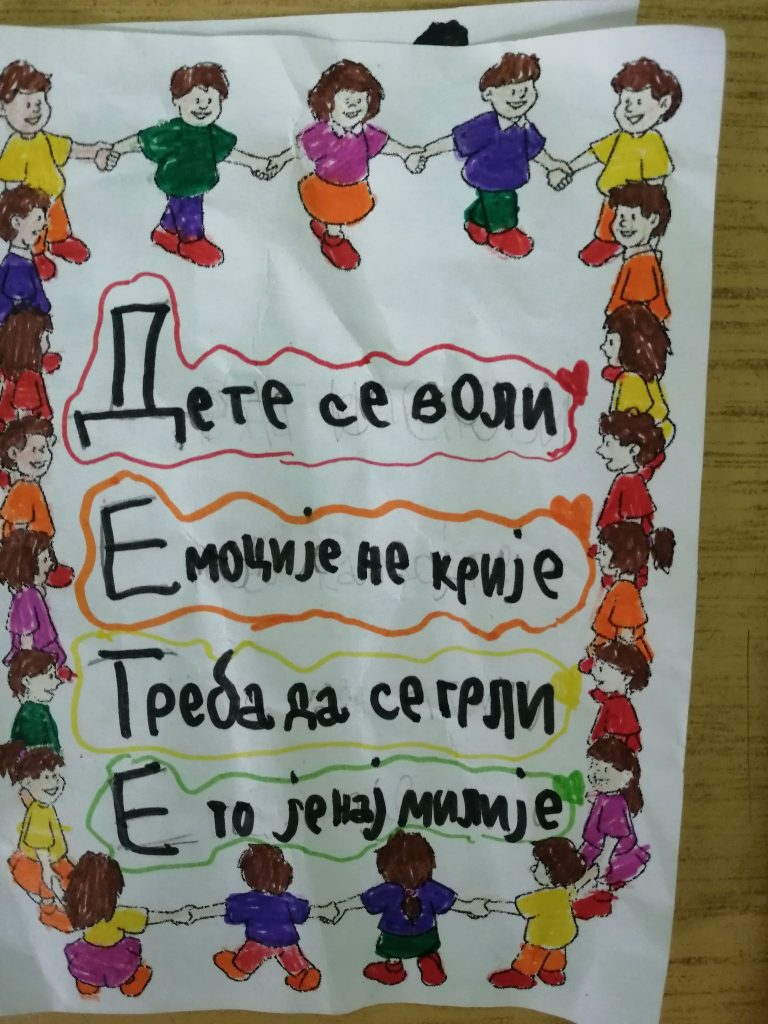 Дете се воли
Емоције не крије
Треба да се грли
Е то је најмилије